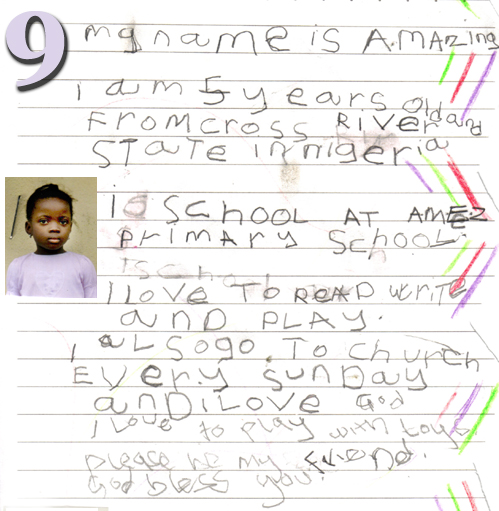 9
my name is AMAzing
i am 5 years old and
From cross River
State in nigeria
i SCHOOL AT
primary School.
I Love To READ write
and PLAY.
i aLSo go To church
Every Sunday
and i Love God
i Love to play with toys
please be my friend.
God bless you.